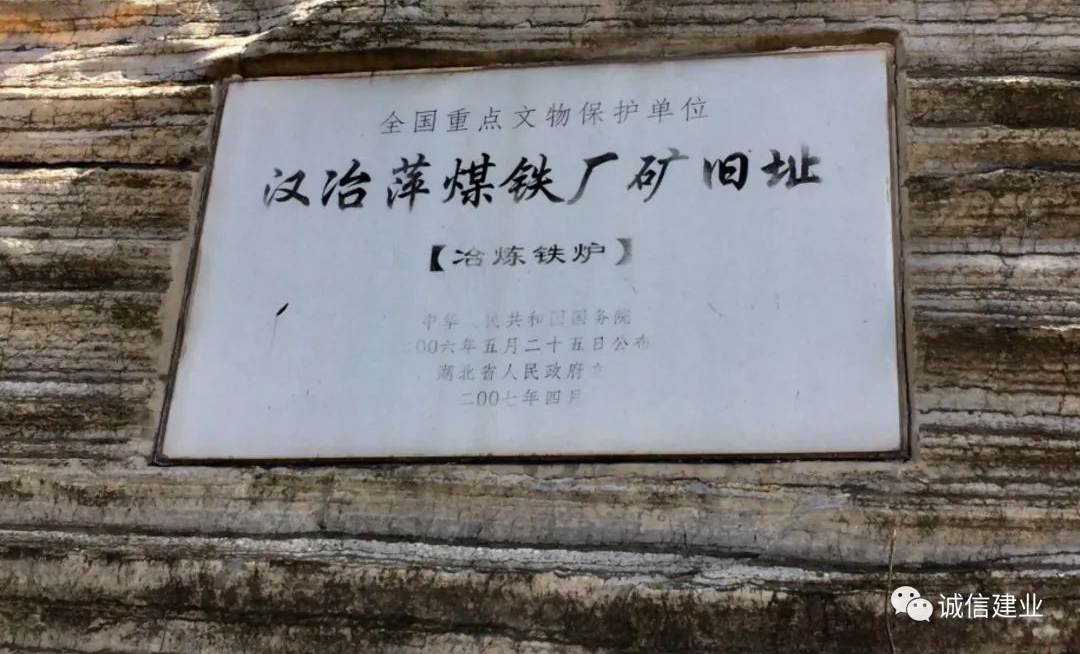 全国重点文物保护单位
汉冶萍煤铁厂矿旧址
【冶炼铁炉】
中华 民共和国国务院
00六年五月二十五日公布
湖北省人民政府立
二00七年四月
诚信建业